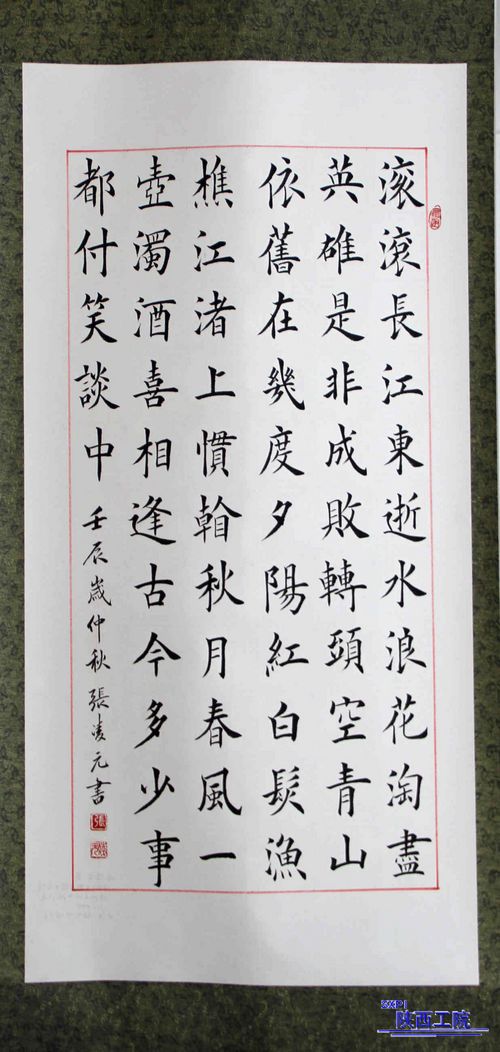 滚滾長江東逝水浪花淘盡
英雄是非成敗轉頭空青山
依舊在幾度夕陽紅白髮漁
樵江渚上慣秋月春風一
壺濁酒喜相逢古今多少事
都付笑談中
壬辰歲仲秋張凌元書
SXPI
陕西工院